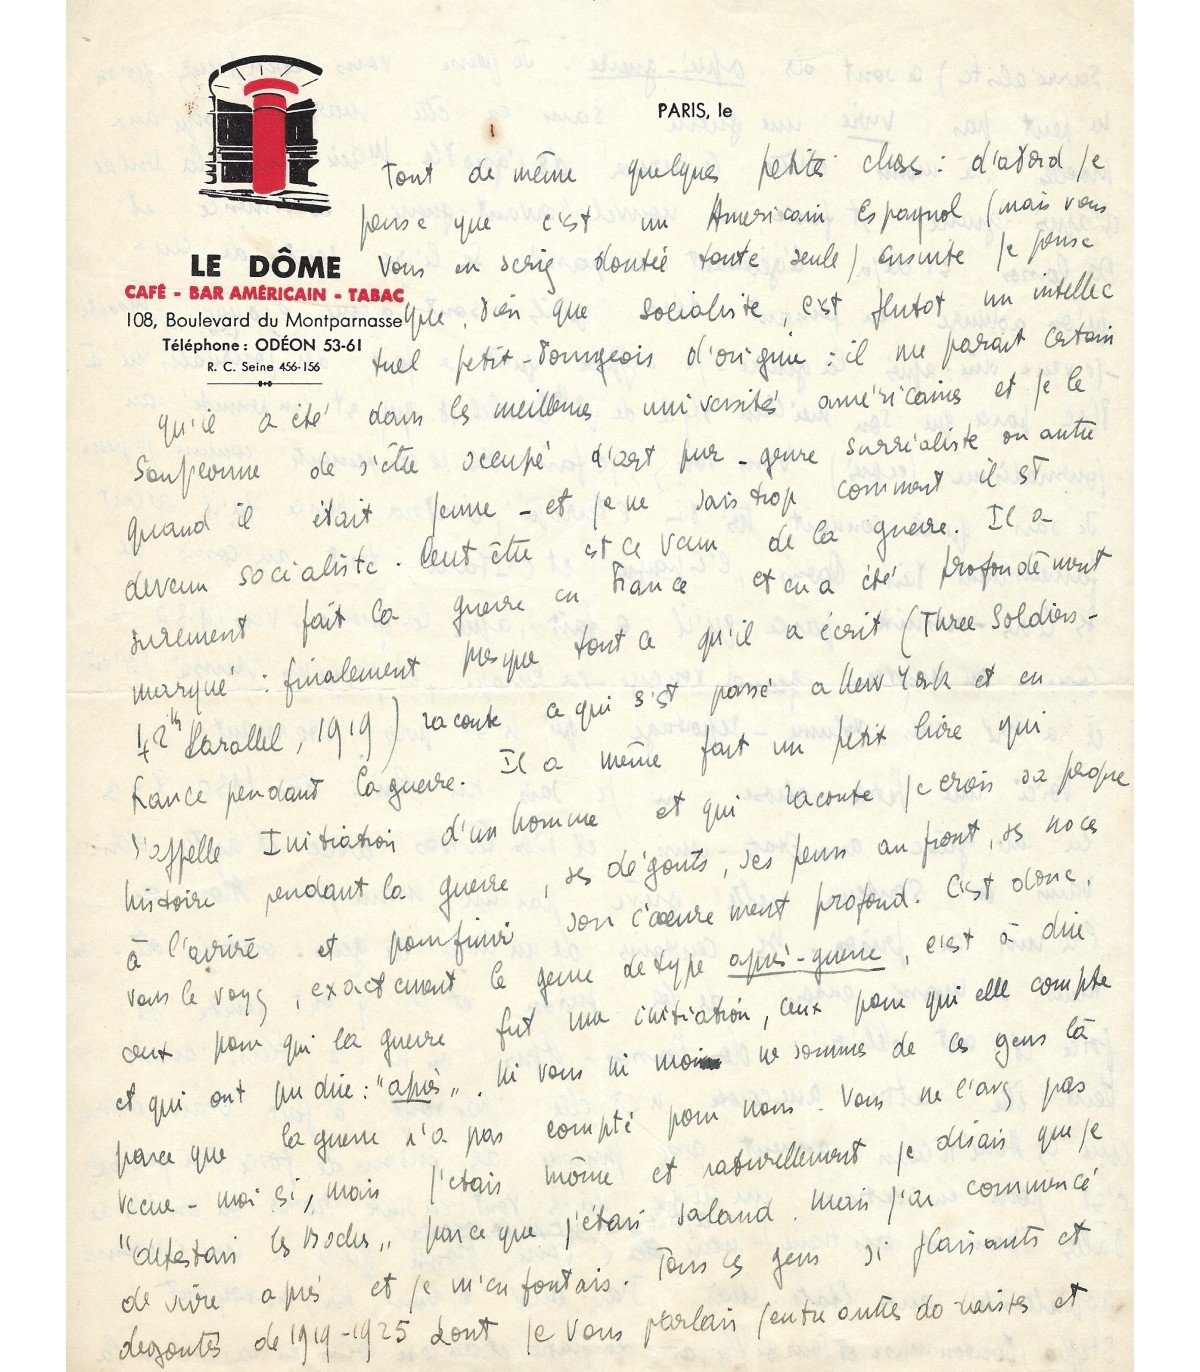 PARIS, le
LE DÔME
CAFÉ - BAR AMÉRICAIN - TABAC
108, Boulevard du Montparnasse
Téléphone : ODÉON 53-61
R. C. Seine 456-156
Tout de même quelques petites choses : d'abord je
pense que c'est un Américain Espagnol (mais vous
vous en seriez doutée toute seule) Ensuite je pense
que, bien que socialiste, c'est plutot un intellec
tuel petit-bourgeois d'origine : il me parait certain
qu'il a été dans les meilleures universités américaines et je le
soupconne de s'être occupé d'art pur - genre surréaliste ou autre
quand il était jeune - et je ne sais trop comment il est
devenu socialiste. Peut être est ce venu de la guerre. Il a
surement fait la guerre en France et en a été profondément
marqué : finalement presque tout ce qu'il a écrit (Three Soldiers -
42th Parallel, 1919) raconte ce qui s'est passé a New York et en
France pendant la guerre. Il a même fait un petit livre qui
s'appelle Initiation d'un homme et qui raconte je crois sa propre
histoire pendant la guerre, ses dégouts, ses peurs au front, ses noces
à l'arrière et pour finir son écœurement profond. C'est donc,
vous le voyez, exactement le genre de type après-guerre, c'est à dire
ceux pour qui la guerre fut une initiation, ceux pour qui elle compte
et qui ont pu dire : "après". Ni vous ni moi ne sommes de ces gens là
parce que la guerre n'a pas compté pour nous. Vous ne l'avez pas
vecue - moi si, mais j'étais môme et naturellement je disais que je
"détestais les Boches" parce que j'étais salaud. Mais j'ai commencé
de vivre après et je m'en foutais. Tous ces gens si plaisants et
degoutés de 1919-1925 dont je vous parlais (entre autres dadaistes et